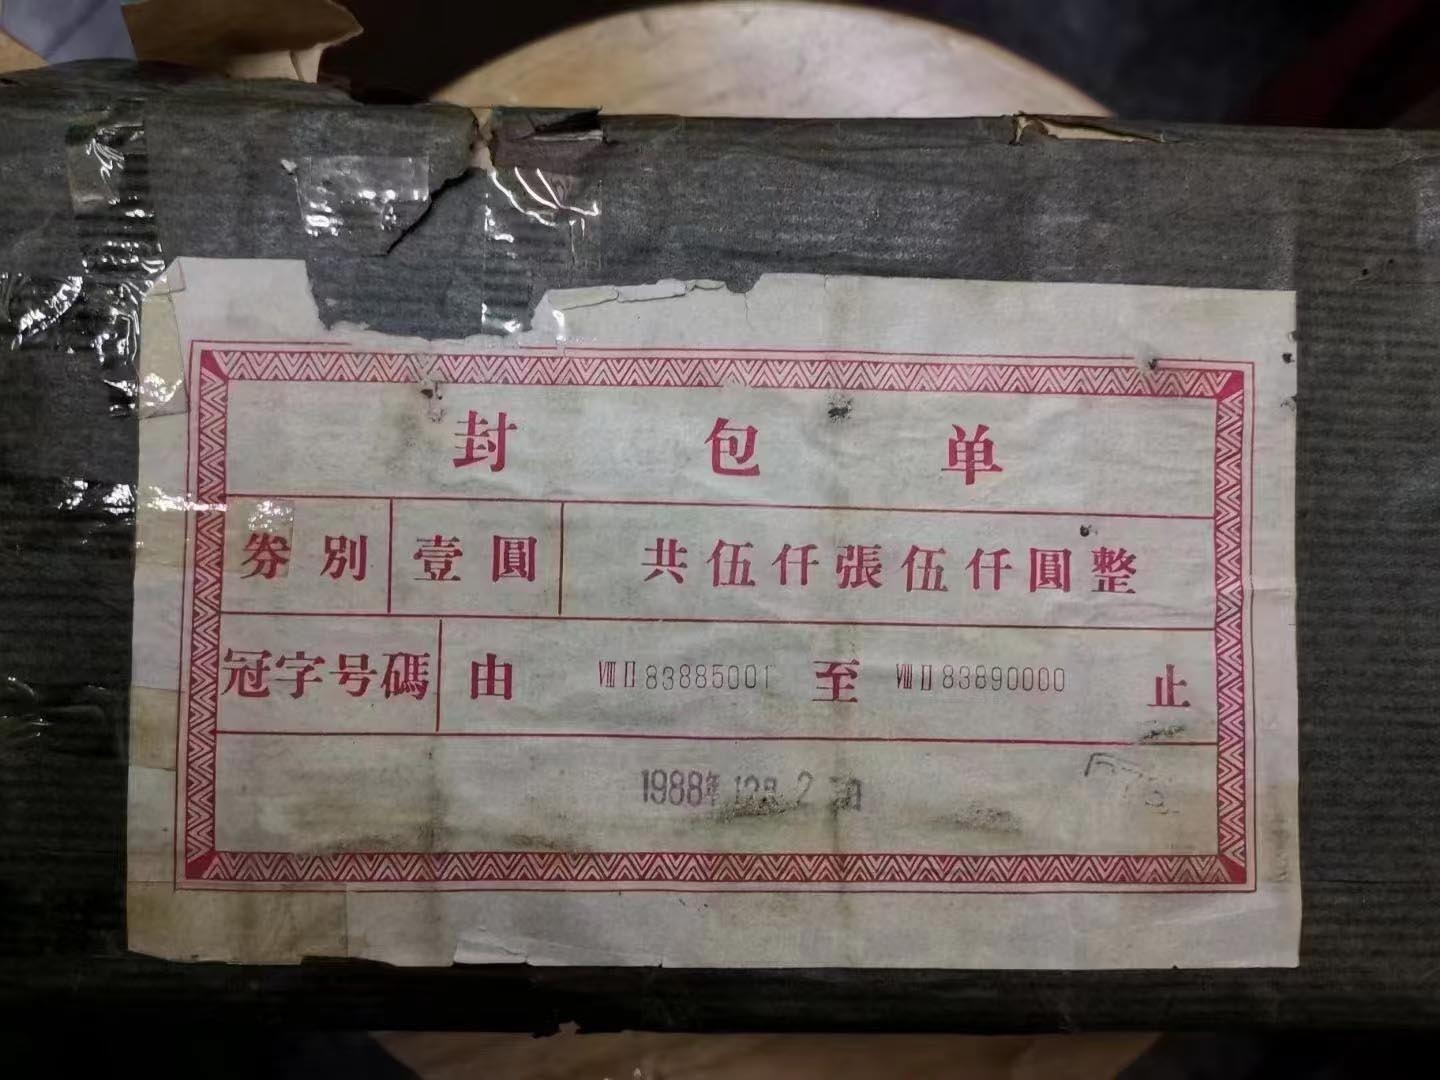 封包单
券別 壹圓 共伍仟張伍仟圓整
冠字号碼 由 ⅧⅡ83885001 至 ⅧⅡ83890000 止
1988年